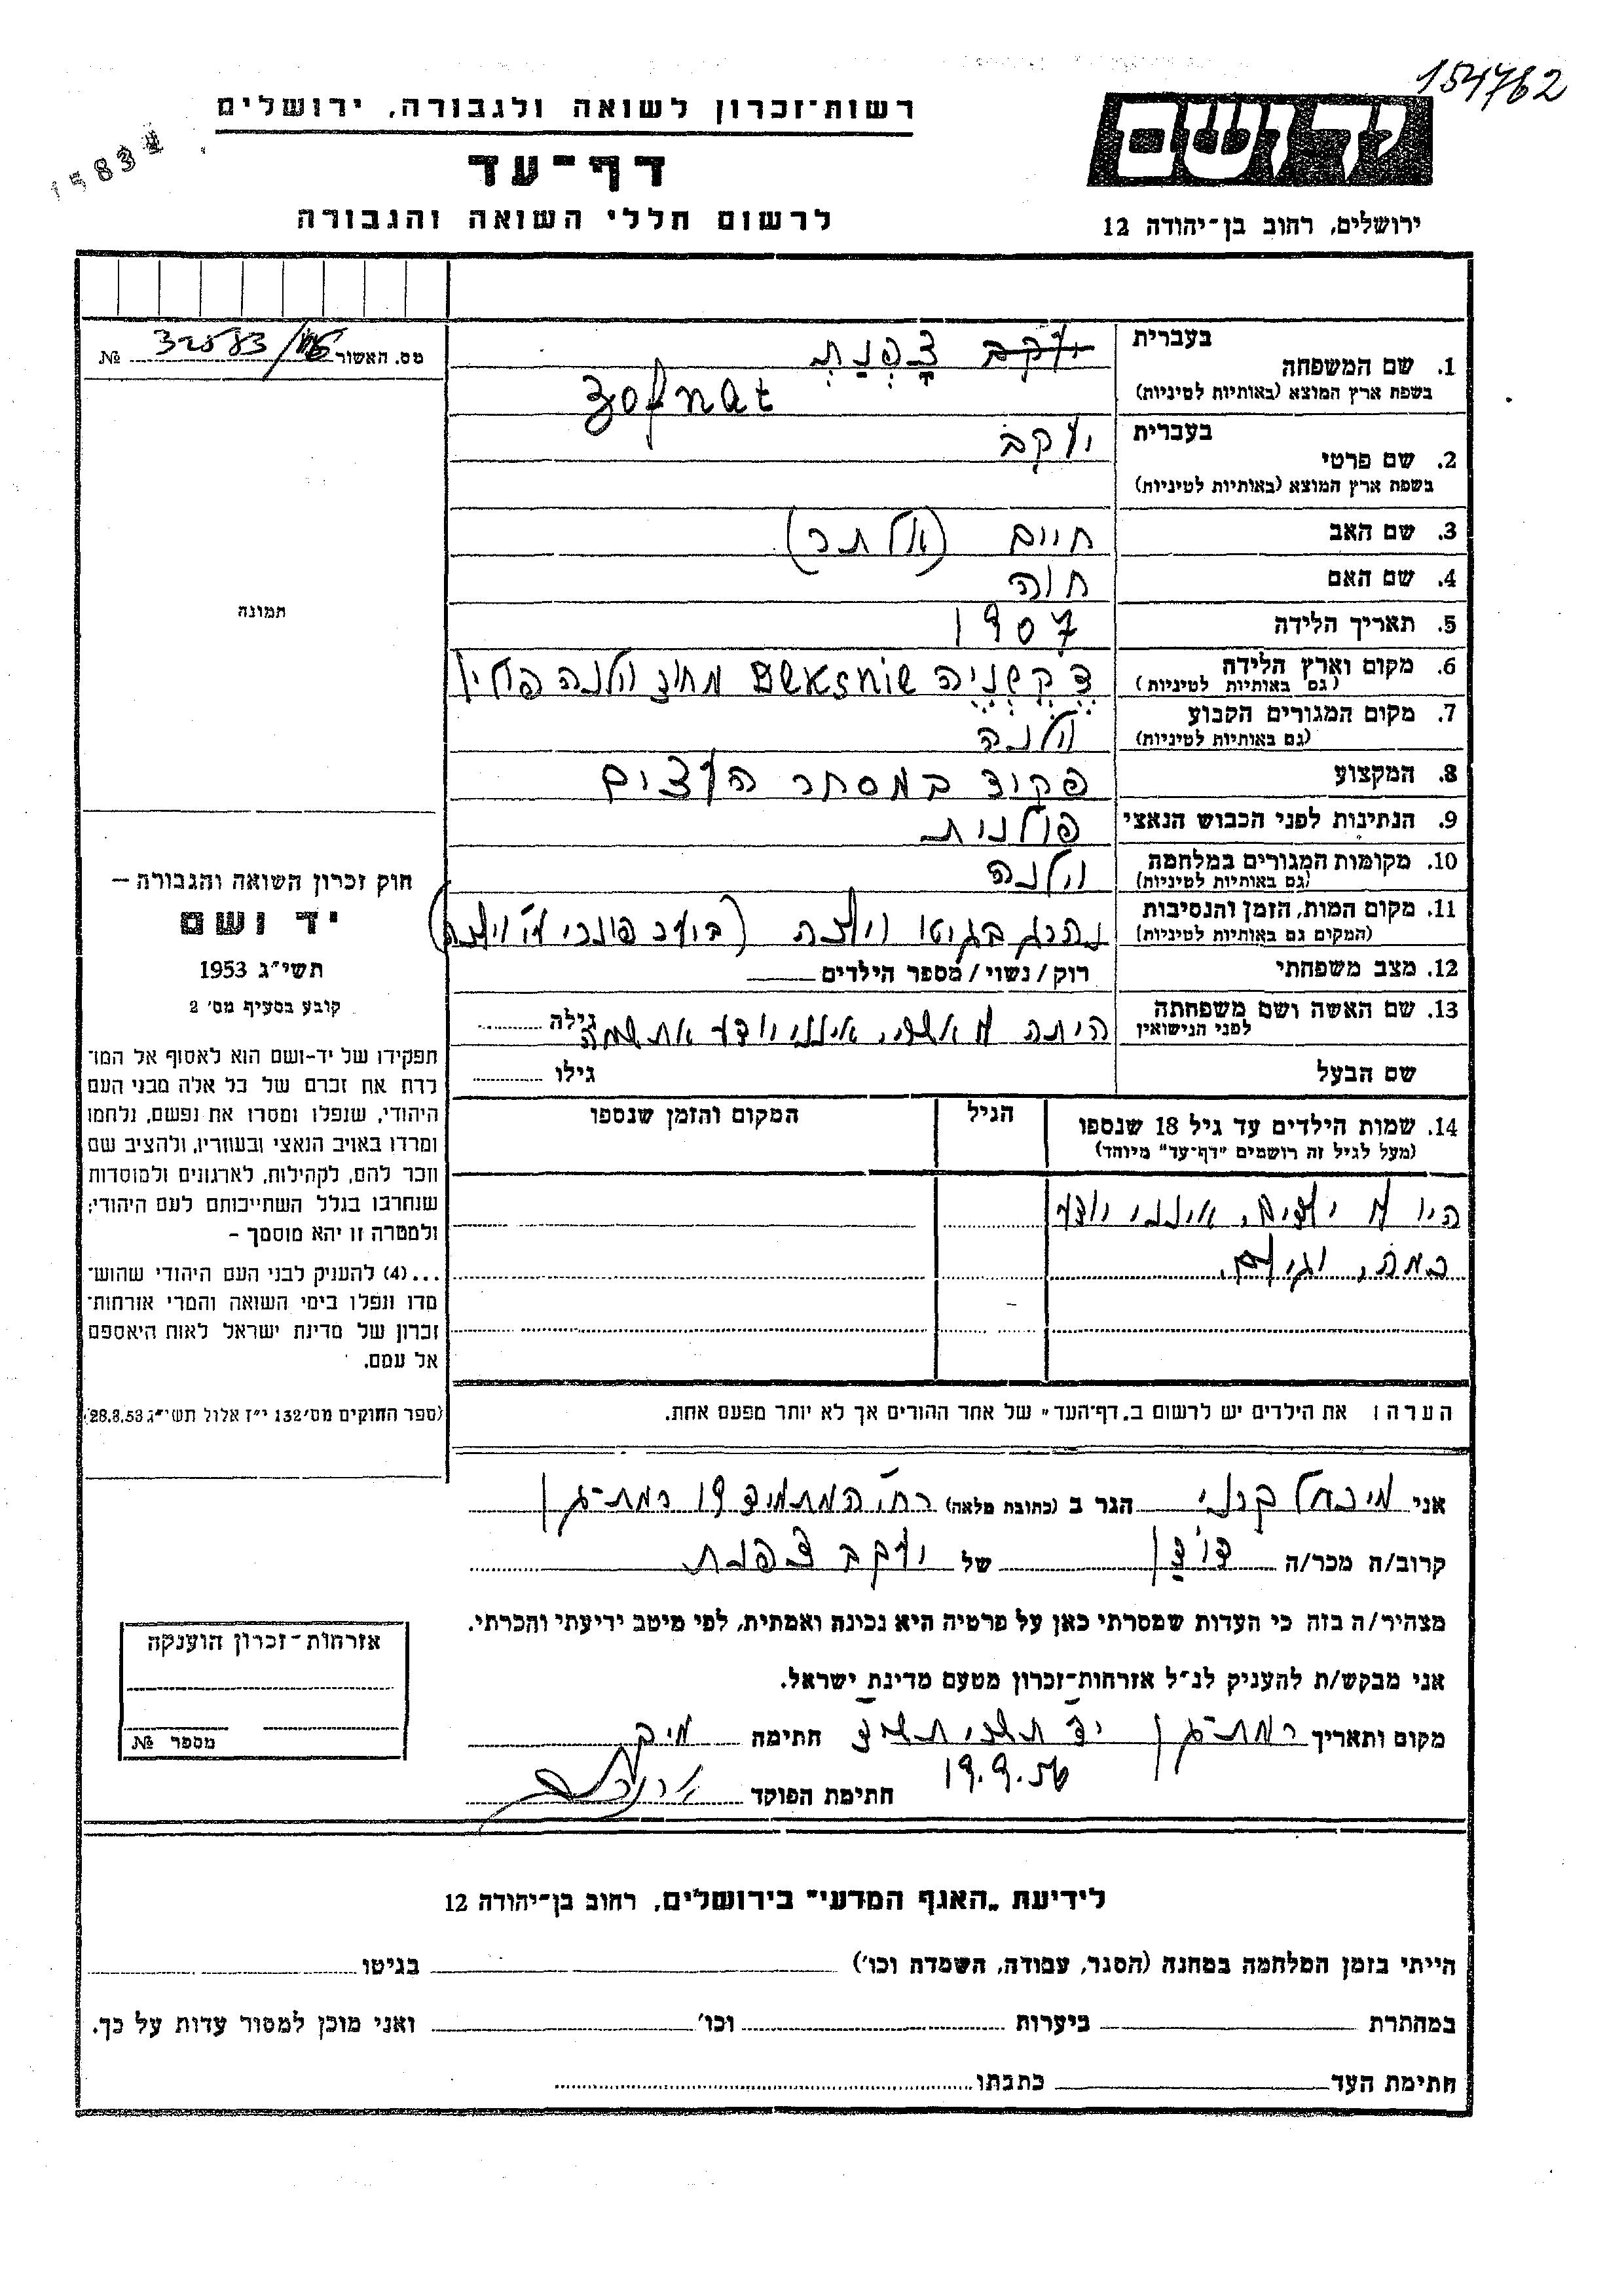 154762
רשות־זכרון לשואה ולגבורה, ירושלים
דף־עד
לרשום חללי השואה והגבורה
יד ושם
ירושלים, רחוב בן־יהודה 12
מס. האשור 32583 №
1. שם המשפחה
בעברית יעקב צָפְנַת
בשפת ארץ המוצא (באותיות לטיניות) Zofnat
2. שם פרטי
בעברית יעקב
בשפת ארץ המוצא (באותיות לטיניות)
3. שם האב חיים (אלתר)
4. שם האם חוה
5. תאריך הלידה 1907
6. מקום וארץ הלידה
(גם באותיות לטיניות) דקשניה מחוז וילנה פולין
7. מקום המגורים הקבוע
(גם באותיות לטיניות) וילנה
8. המקצוע פקיד במסחר העצים
9. הנתינות לפני הכבוש הנאצי פולנית
10. מקומות המגורים במלחמה
(גם באותיות לטיניות) וילנה
11. מקום המות, הזמן והנסיבות
(המקום גם באותיות לטיניות) נהרג בגיטו וילנה (ביער פונרי ע״י וילנה)
12. מצב משפחתי רוק / נשוי / מספר הילדים
13. שם האשה ושם משפחתה
לפני הנישואין היתה לו אשה, אינני יודע את שמה גילה
שם הבעל גילו
14. שמות הילדים עד גיל 18 שנספו
(מעל לגיל זה רושמים "דף־עד" מיוחד)
הגיל
המקום והזמן שנספו
היו לו ילדים, אינני יודע
כמה, וגילם.
הערה: את הילדים יש לרשום ב„דף־העד" של אחד ההורים אך לא יותר מפעם אחת.
תמונה
חוק זכרון השואה והגבורה –
יד ושם
תשי״ג 1953
קובע בסעיף מס׳ 2
תפקידו של יד-ושם הוא לאסוף אל המו־
לדת את זכרם של כל אלה מבני העם
היהודי, שנפלו ומסרו את נפשם, נלחמו
ומרדו באויב הנאצי ובעוזריו, ולהציב שם
וזכר להם, לקהילות, לארגונים ולמוסדות
שנחרבו בגלל השתייכותם לעם היהודי;
ולמטרה זו יהא מוסמך –
...(4) להעניק לבני העם היהודי שהוש־
מדו ונפלו בימי השואה והמרי אזרחות־
זכרון של מדינת ישראל לאות היאספם
אל עמם.
(ספר החוקים מס׳ 132 י״ז אלול תשי״ג 28.8.53)
אני מיכאל קרני הגר ב (כתובת מלאה) רח׳ המתמיד 19 רמת־גן
קרוב/ה מכר/ה דוֹדָן של יעקב צפנת
מצהיר/ה בזה כי העדות שמסרתי כאן על פרטיה היא נכונה ואמתית, לפי מיטב ידיעתי והכרתי.
אני מבקש/ת להעניק לנ״ל אזרחות־זכרון מטעם מדינת ישראל.
מקום ותאריך רמת־גן יד תשרי חתימה
19.9.56
חתימת הפוקד
אזרחות־זכרון הוענקה
מספר №
לידיעת „האגף המדעי" בירושלים, רחוב בן־יהודה 12
הייתי בזמן המלחמה במחנה (הסגר, עבודה, השמדה וכו׳) בגיטו
במחתרת ביערות וכו׳ ואני מוכן למסור עדות על כך.
חתימת העד כתבתו